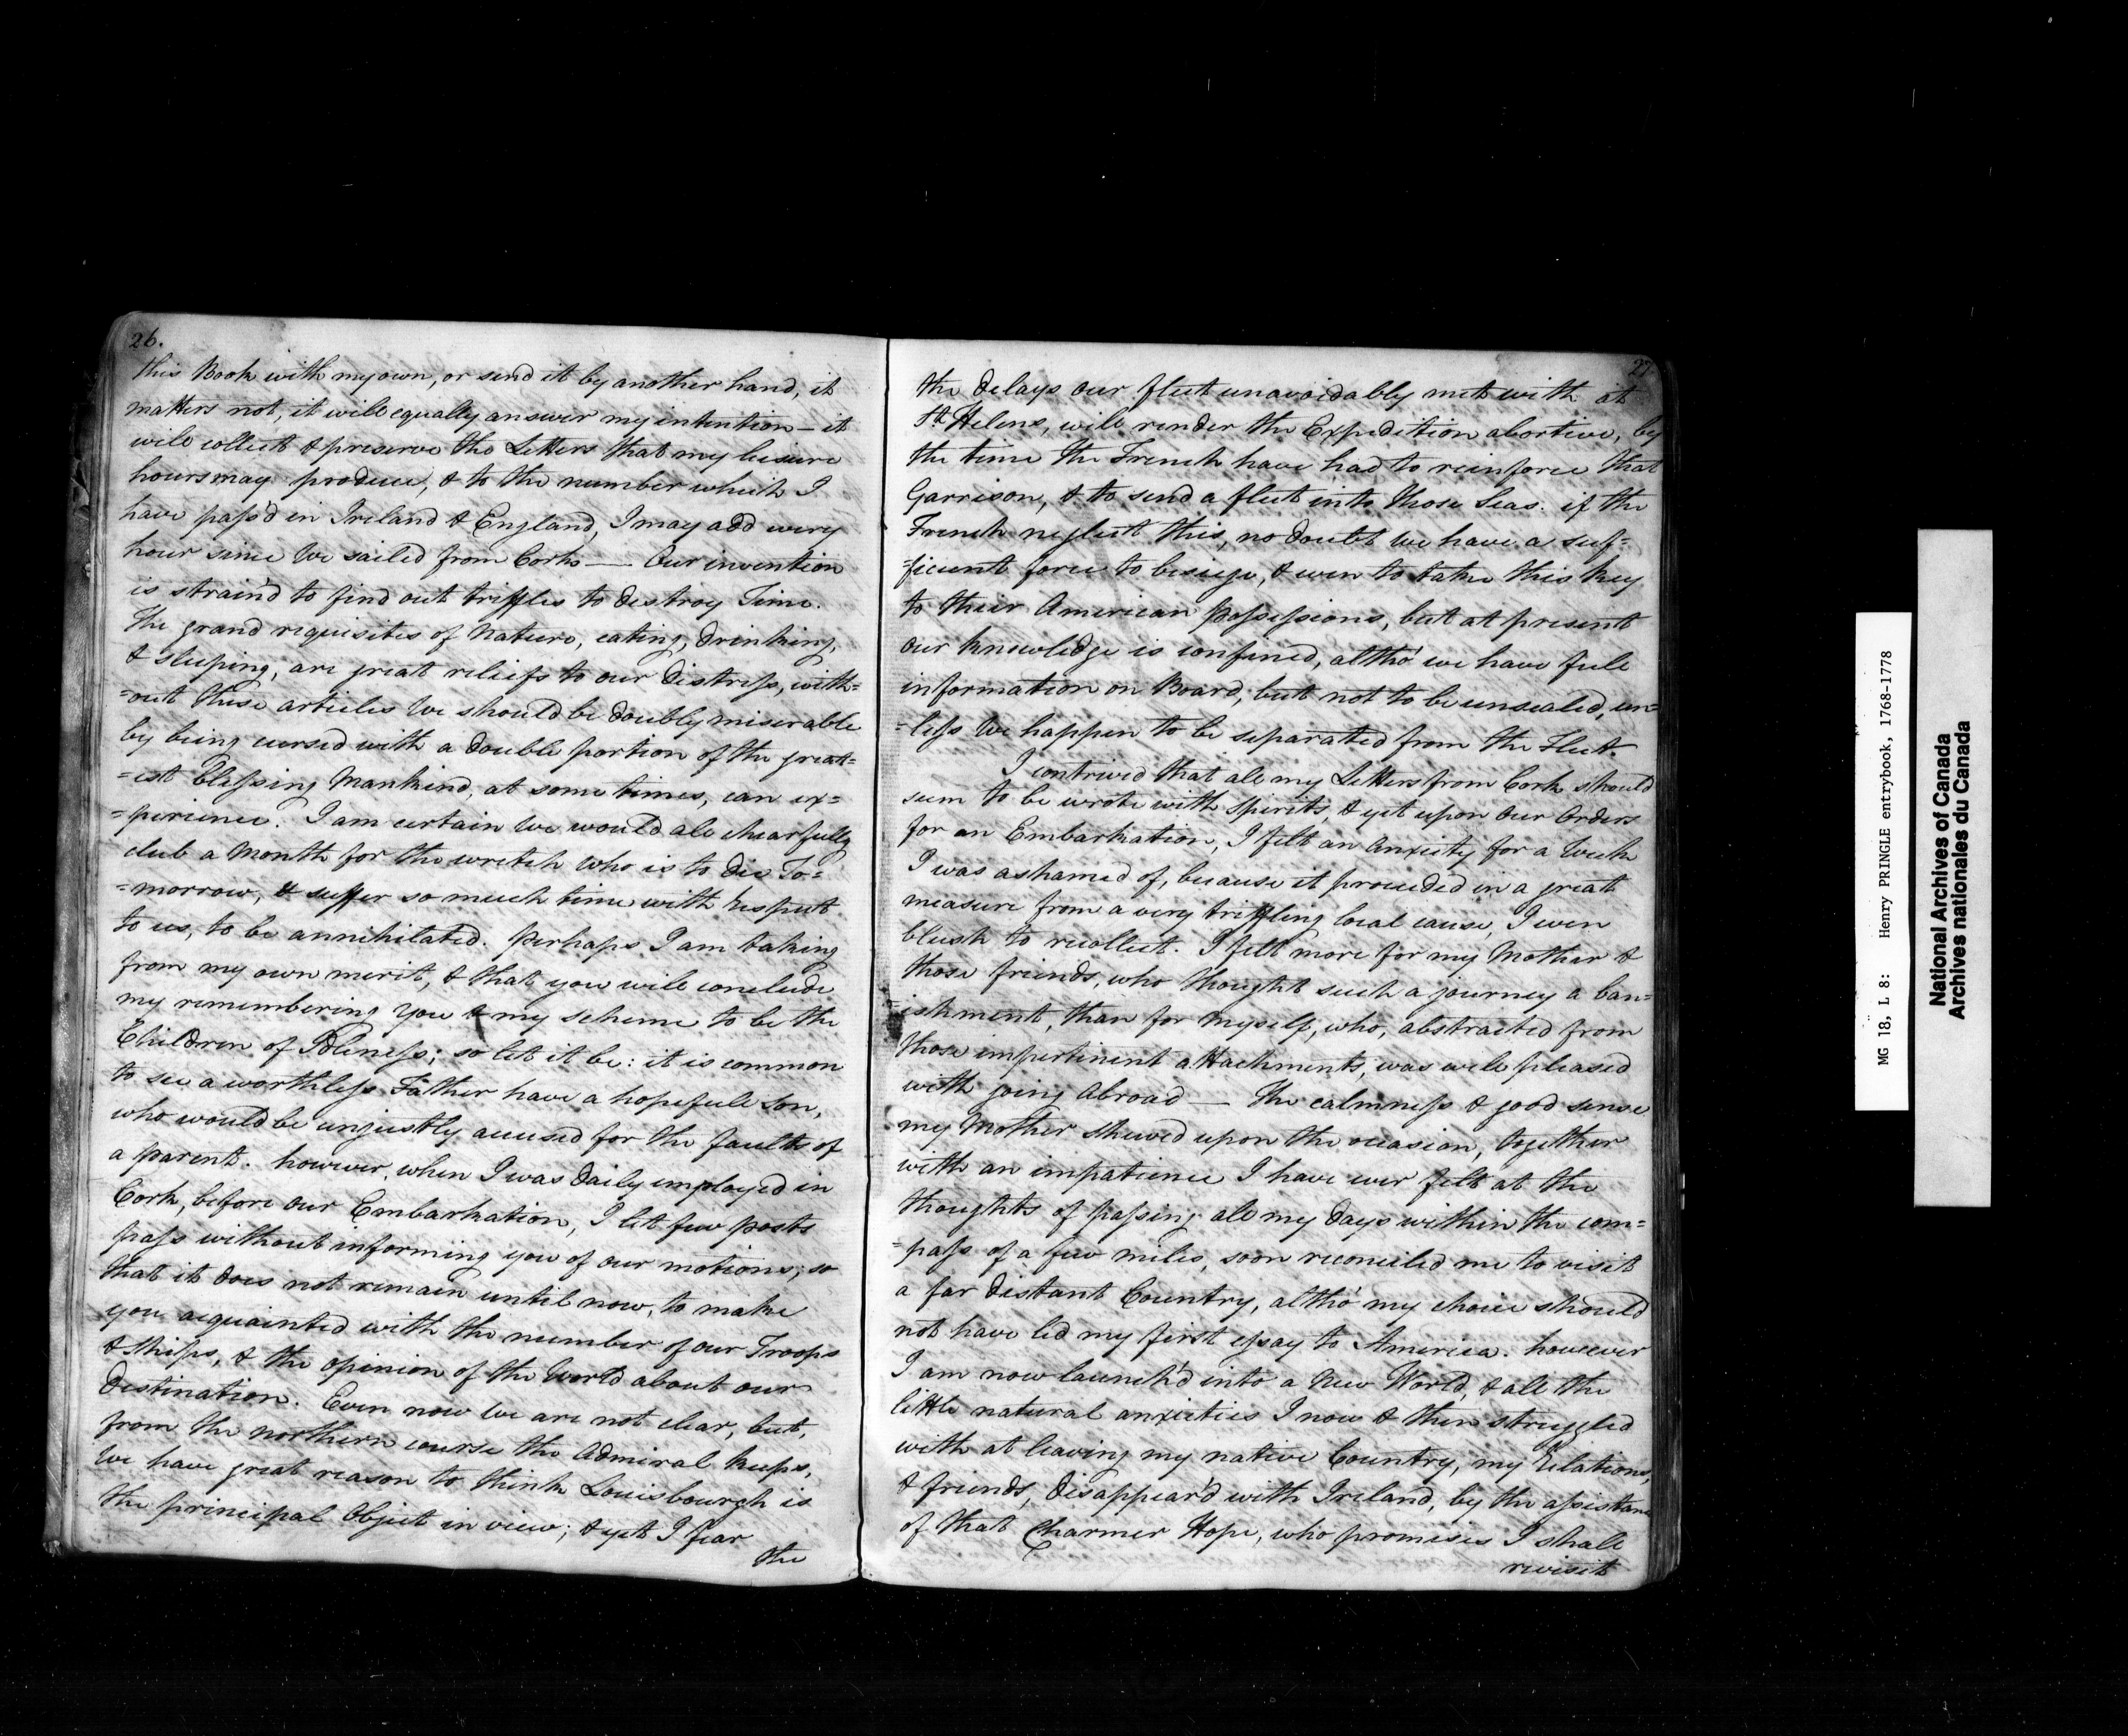 26.
this Book with my own, or send it by another hand, it
matters not, it will equally answer my intention - it
will collect & preserve the Letters that my leisure
hours may produce, & to the number which I
have pass'd in Ireland & England, I may add every
hour since we sailed from Cork — Our invention
is strain'd to find out triffles to destroy Time.
The grand requisites of Nature, eating, drinking,
& sleeping, are great reliefs to our distress, with=
=out these articles we should be doubly miserable
by being cursed with a double portion of the great=
=est blessing Mankind, at some times, can ex=
=perience. I am certain we would all chearfully
club a Month for the wretch who is to die To=
=morrow, & suffer so much time with respect
to us, to be annihilated. perhaps I am taking
from my own merit, & that you will conclude
my remembering you & my scheme to be the
Children of Idleness; so let it be: it is common
to see a worthless Father have a hopefull Son,
who would be unjustly accused for the faults of
a parent. however, when I was daily employed in
Cork, before our Embarkation, I let few posts
pass without informing you of our motions; so
that it does not remain until now, to make
you acquainted with the number of our Troops
& Ships, & the opinion of the World about our
destination. Even now we are not clear, but,
from the northern course the Admiral keeps,
we have great reason to think Louisbourgh is
the principal Object in view; & yet I fear
the
27
the delays our fleet unavoidably met with at
St Helens, will render the Expedition abortive, by
the time the French have had to reinforce that
Garrison, & to send a fleet into those Seas. if the
French neglect this, no doubt we have a suf=
=ficient force to besiege, & even to take this key
to their American possessions, but at present
our knowledge is confined, altho' we have full
information on Board, but not to be unsealed, un=
=less we happen to be separated from the Fleet.
I contrived that all my Letters from Cork should
seem to be wrote with spirits, & yet upon our Orders
for an Embarkation, I felt an anxiety for a Week
I was ashamed of, because it proceeded in a great
measure from a very triffling local cause, I even
blush to recollect. I felt more for my Mother &
those friends, who thought such a journey a ban=
=ishment, than for myself, who, abstracted from
those impertinent attachments, was well pleased
with going abroad — The calmness & good sense
my Mother shewed upon the occasion, together
with an impatience I have ever felt at the
thoughts of passing all my days within the com=
=pass of a few miles, soon reconciled me to visit
a far distant Country, altho' my choice should
not have led my first essay to America. however
I am now launch'd into a New World, & all the
little natural anxieties I now & then struggled
with at leaving my native Country, my Relations,
& friends, disappear'd with Ireland, by the assistance
of that Charmer Hope, who promises I shall
revisit
MG 18, L 8: Henry PRINGLE entrybook, 1768-1778
National Archives of Canada
Archives nationales du Canada